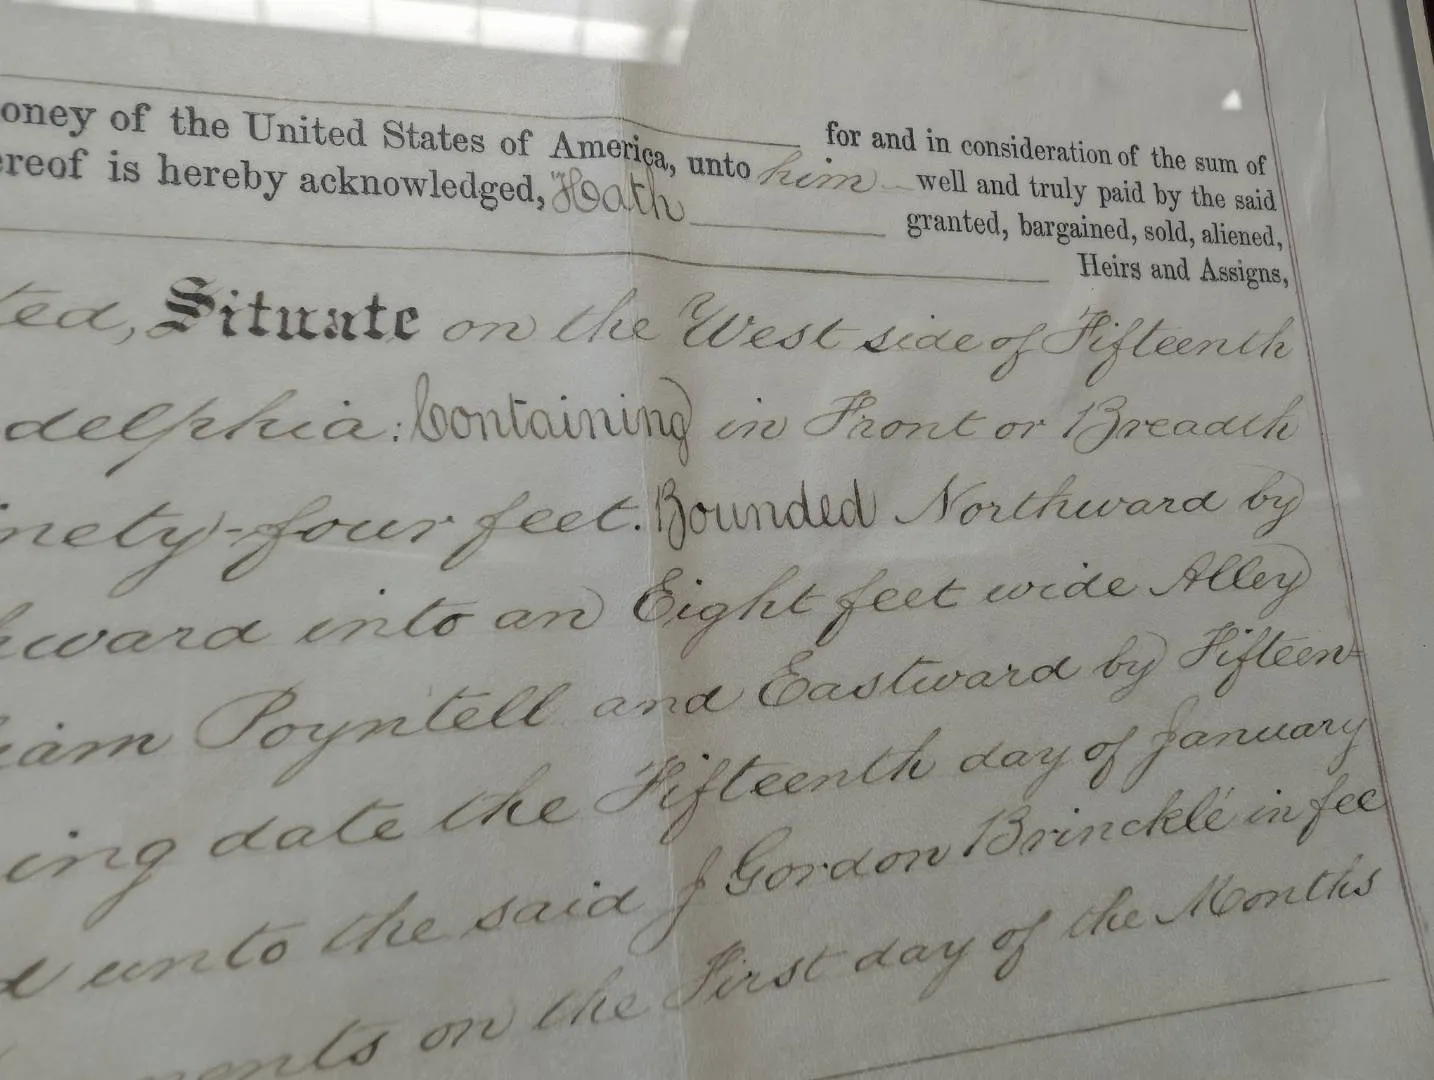 for and in consideration of the sum of
oney of the United States of America, unto him well and truly paid by the said
ereof is hereby acknowledged, Hath granted, bargained, sold, aliened,
Heirs and Assigns,
ted, Situate on the West side of Fifteenth
delphia: Containing in Front or Breadth
inety-four feet. Bounded Northward by
hward into an Eight feet wide Alley
iam Poyntell and Eastward by Fifteen-
ing date the Fifteenth day of January
d unto the said J Gordon Brincklé in fee
ments on the First day of the Months